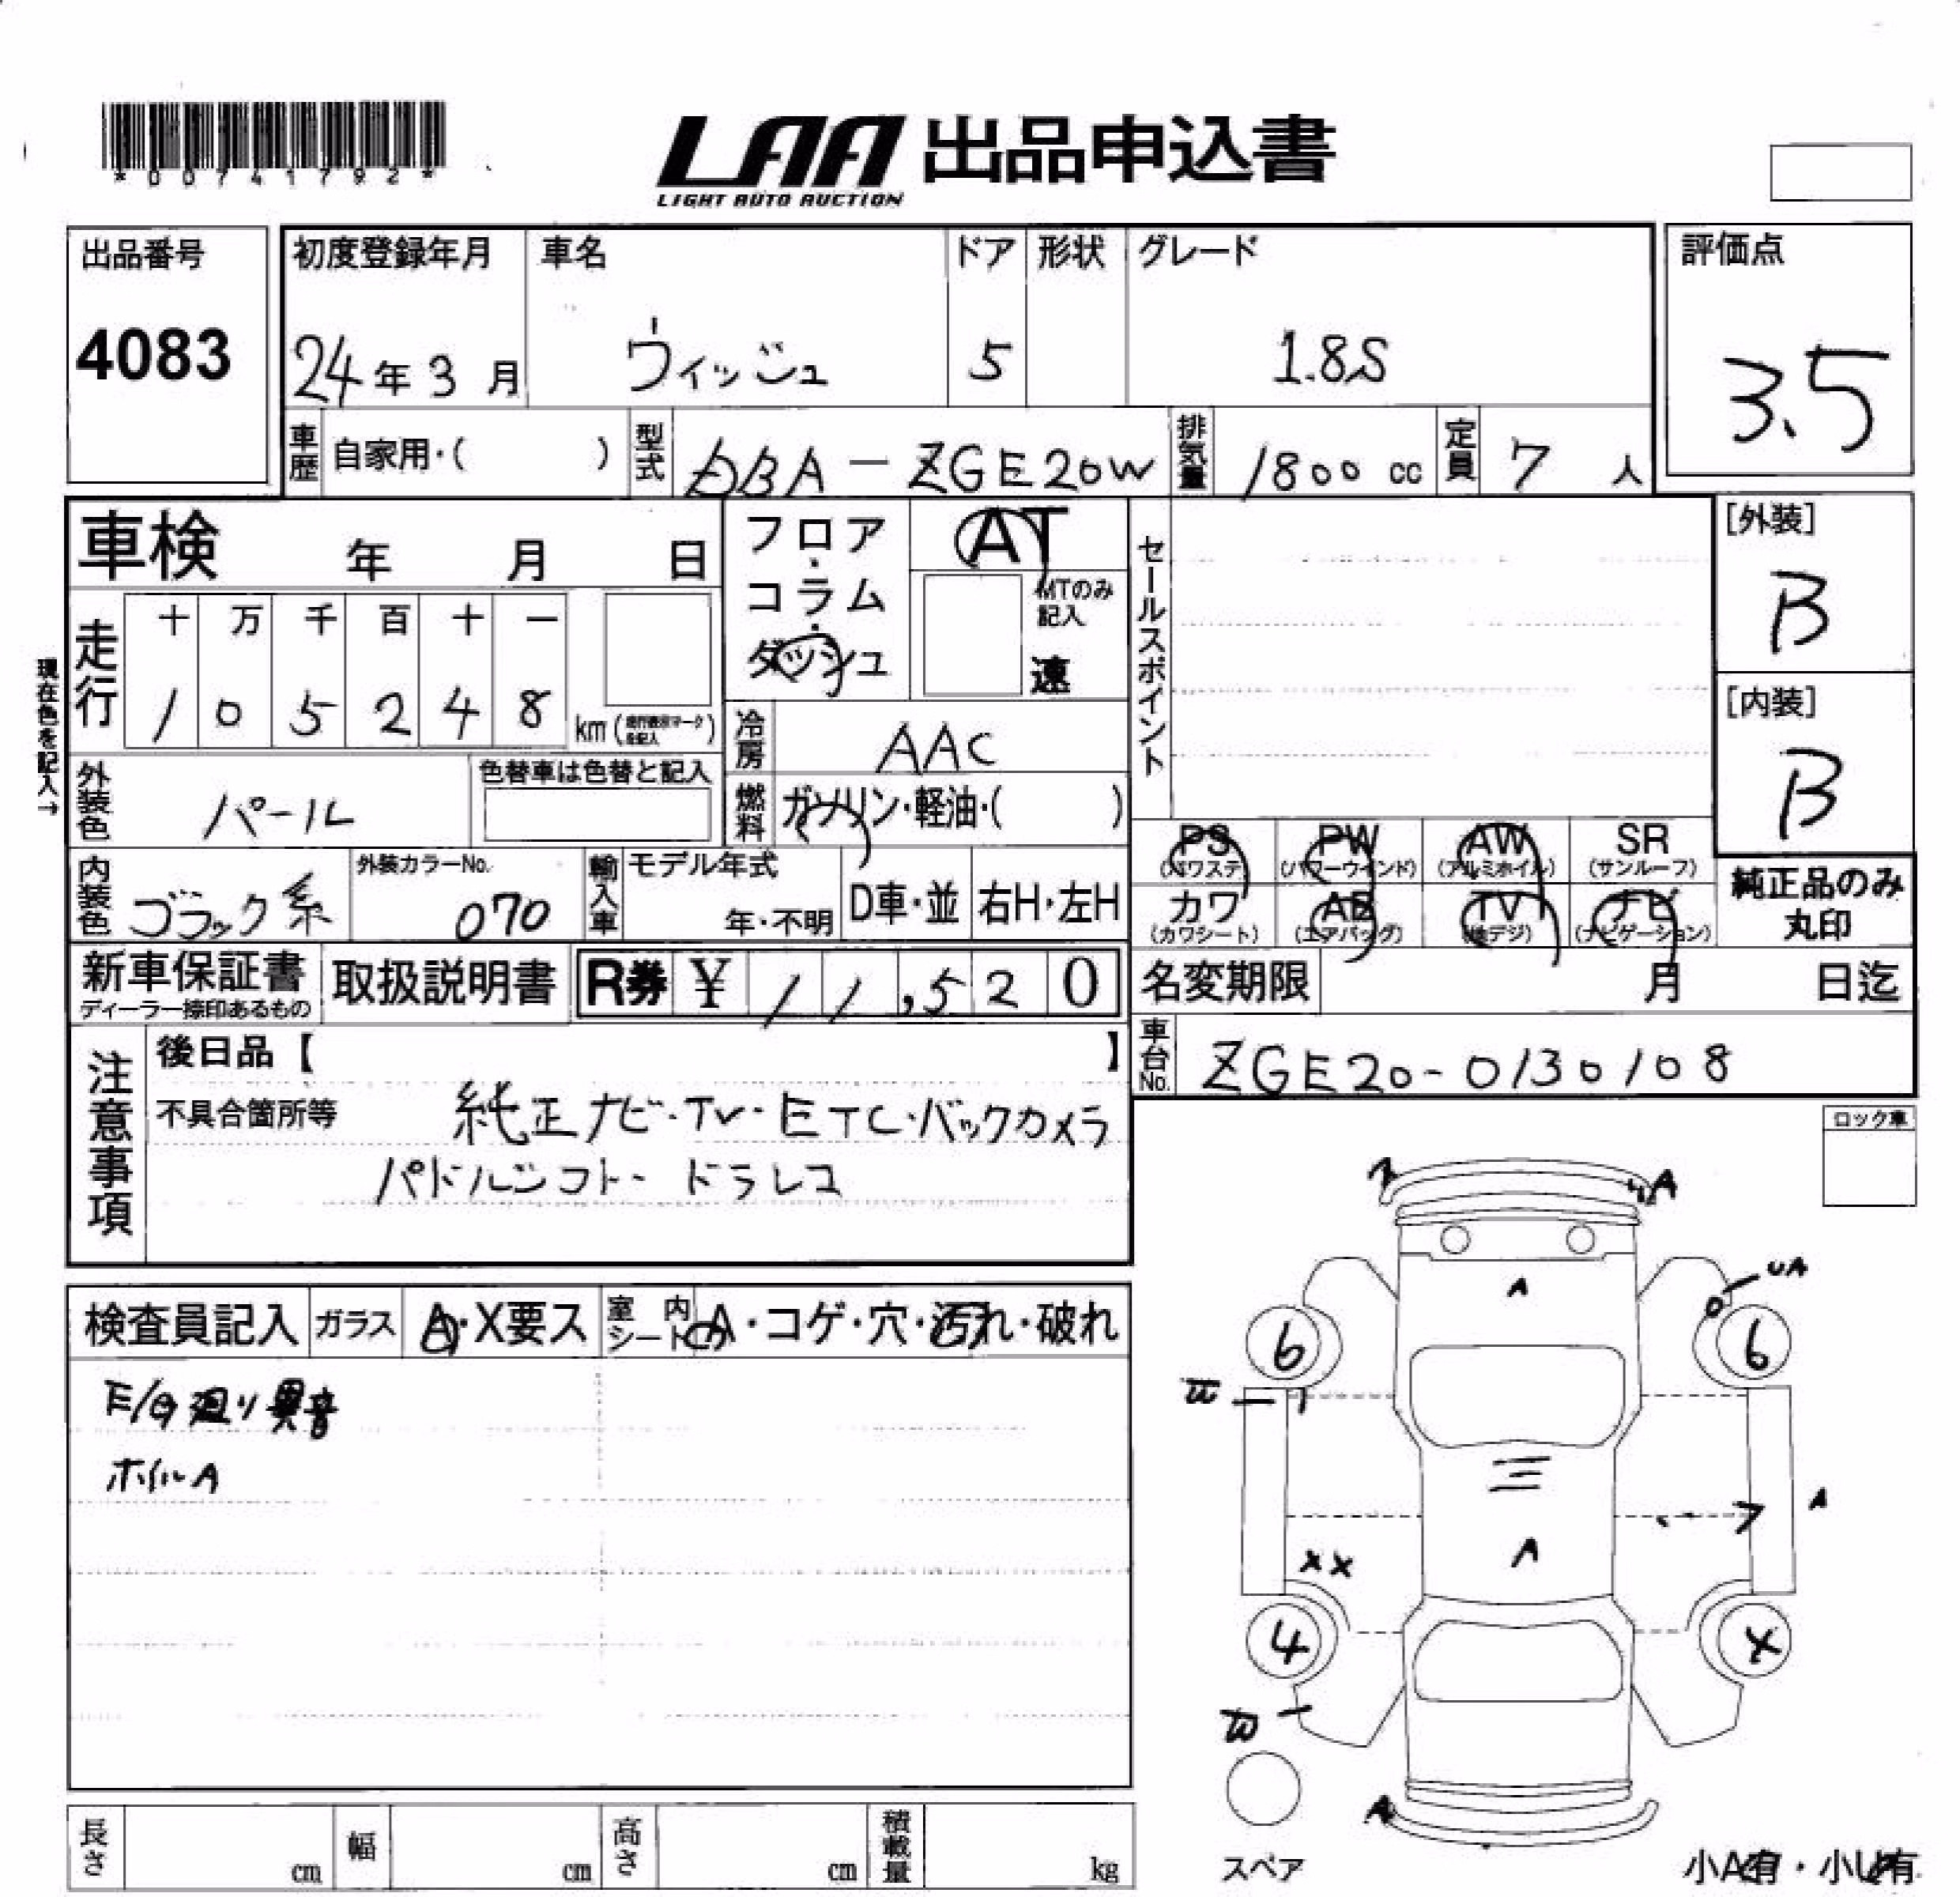 *00741792*
LAA 出品申込書
LIGHT AUTO AUCTION
出品番号
4083
初度登録年月
24年3月
車名
ウィッシュ
ドア
5
形状
グレード
1.8S
評価点
3.5
車歴 自家用・( )
型式 DBA-ZGE20W
排気量 1800 cc
定員 7 人
車検 年 月 日
フロア・コラム・ダッシュ
AT
MTのみ記入
速
セールスポイント
[外装]
B
[内装]
B
現在色を記入→
走行
十 万 千 百 十 一
1 0 5 2 4 8
km ( )
冷房 AAC
外装色 パール
色替車は色替と記入
燃料 ガソリン・軽油・( )
PS (パワステ)
PW (パワーウインド)
AW (アルミホイル)
SR (サンルーフ)
カワ (カワシート)
AB (エアバッグ)
TV (地デジ)
ナビ (ナビゲーション)
純正品のみ丸印
内装色 ブラック系
外装カラーNo.
070
輸入車
モデル年式
年・不明
D車・並
右H・左H
新車保証書
ディーラー捺印あるもの
取扱説明書
R券 ¥ 11,520
名変期限 月 日迄
車台No. ZGE20-0130108
注意事項
後日品【 】
不具合箇所等 純正ナビ・TV・ETC・バックカメラ
パドルシフト・ドラレコ
ロック車
検査員記入
ガラス A・X要ス
室内シート A・コゲ・穴・汚れ・破れ
E/G廻り異音
ホイルA
A
A
UA
6
6
A
A
XX
4
X
W
A
スペア
小A有・小U有
長さ cm
幅 cm
高さ cm
積載量 kg